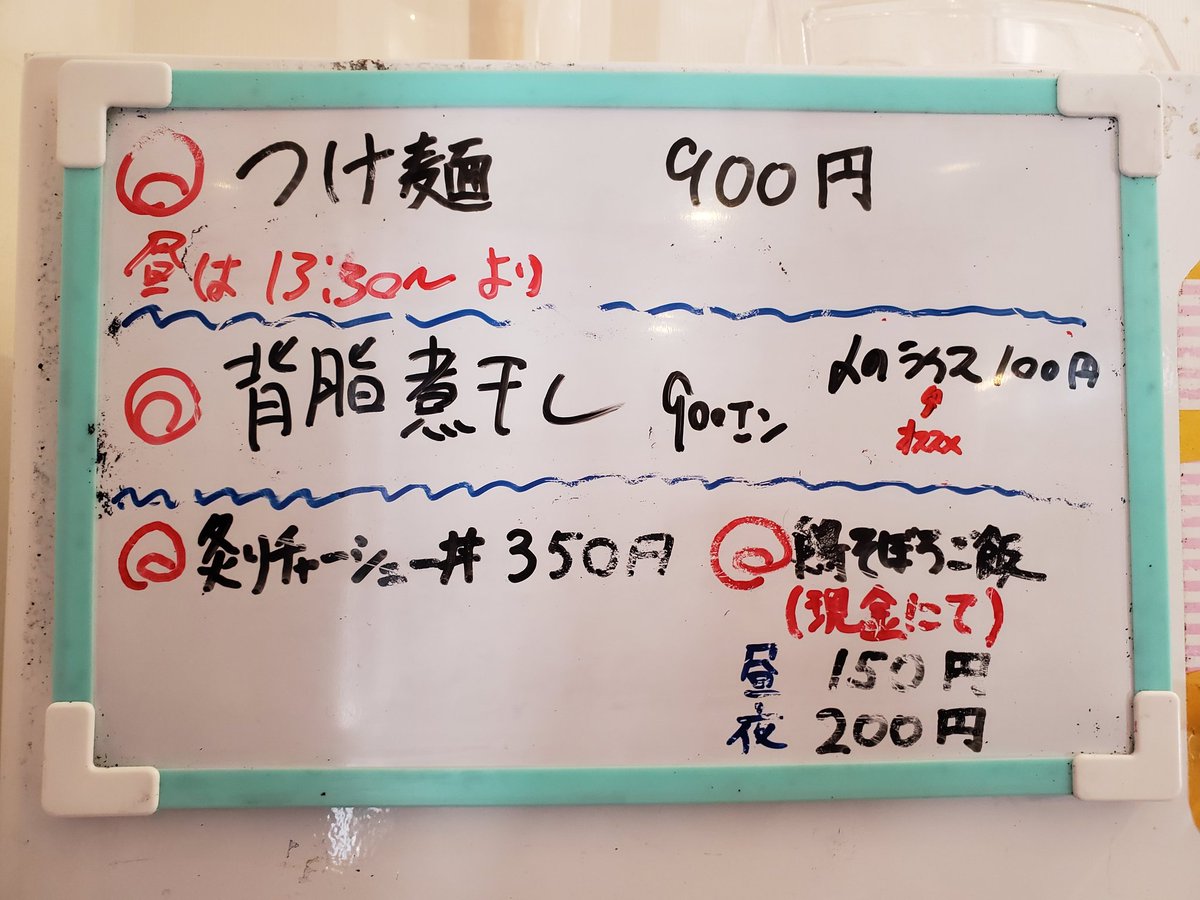 つけ麺 900円
昼は 13:30〜 より
背脂煮干し 900エン
〆のライス 100円
オススメ
炙りチャーシュー丼 350円
鶏そぼろご飯
(現金にて)
昼 150円
夜 200円